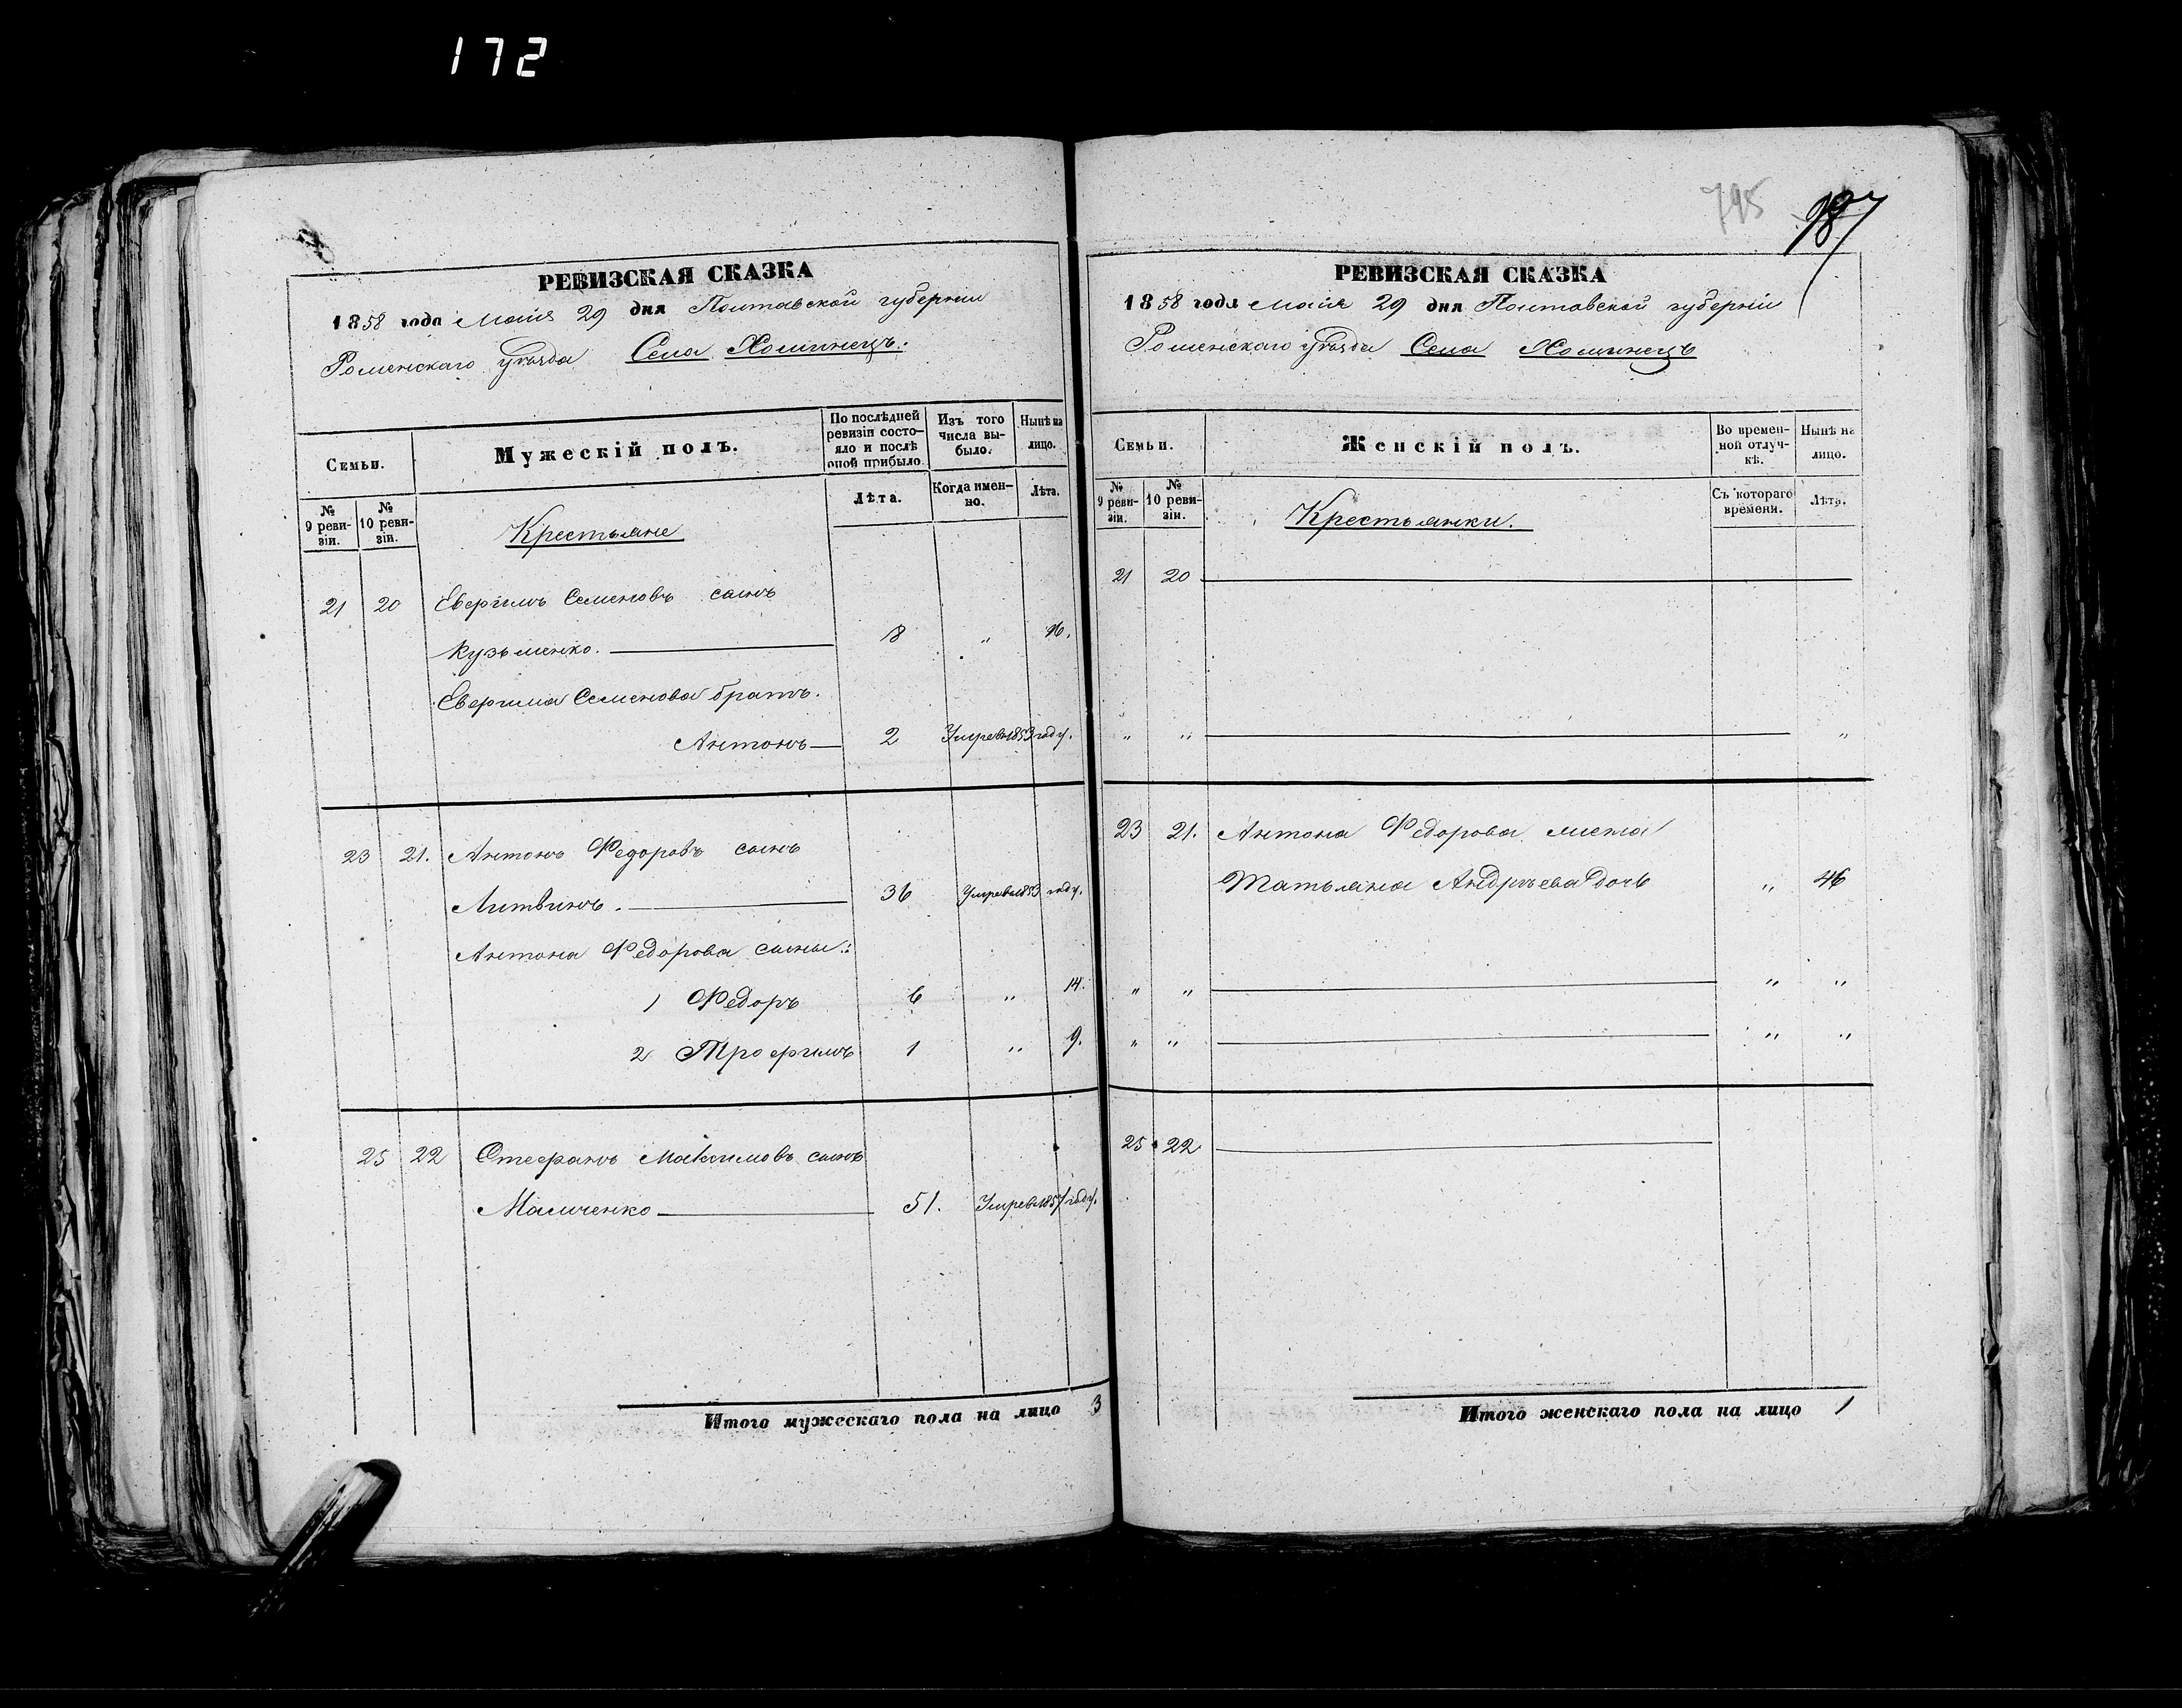 172
РЕВИЗСКАЯ СКАЗКА
1858 года Мая 29 дня Полтавской губерніи
Роменскаго уѣзда Села Хоминецъ.
Семьи.
Мужескій полъ.
По послѣдней ревизіи состояло и послѣ оной прибыло
Изъ того числа выбыло.
Нынѣ на лицо.
№ 9 ревизіи.
№ 10 ревизіи.
Лѣта.
Когда именно.
Лѣта.
Крестьяне
21 20 Евфимъ Семеновъ сынъ
Кузьменко. 8 „ 16.
Евфима Семенова братъ.
Антонъ 2 Умре въ 1853 году.
23 21. Антонъ Федоровъ сынъ
Литвинъ. 36 Умре въ 1853 году.
Антона Федорова сыны:
1 Федоръ 6 „ 14.
2 Трофимъ 1 „ 9.
25 22 Стефанъ Максимовъ сынъ
Малченко 51. Умре въ 1857 году.
Итого мужескаго пола на лицо 3
795 187
РЕВИЗСКАЯ СКАЗКА
1858 года Мая 29 дня Полтавской губерніи
Роменскаго уѣзда Села Хоминецъ
Семьи.
Женскій полъ.
Во временной отлучкѣ.
Нынѣ на лицо.
№ 9 ревизіи.
№ 10 ревизіи.
Съ котораго времени.
Лѣта.
Крестьянки.
21 20
„ „ „
23 21. Антона Федорова жена
Татьяна Андрѣева дочь „ 46
„ „ „ „
„ „ „ „
25 22
Итого женскаго пола на лицо 1